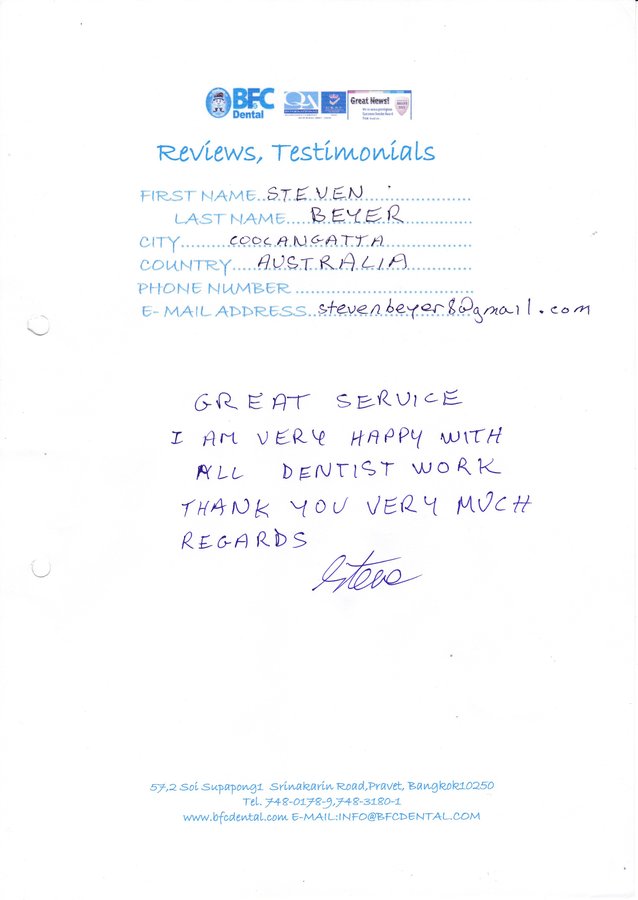 BFC
Dental
QA
Great News!
Reviews, Testimonials
FIRST NAME..STEVEN
LAST NAME....BEYER
CITY.........COOLANGATTA
COUNTRY....AUSTRALIA
PHONE NUMBER
E- MAIL ADDRESS..stevenbeyer8@gmail.com
GREAT SERVICE
I AM VERY HAPPY WITH
ALL DENTIST WORK
THANK YOU VERY MUCH
REGARDS
Steve
57,2 Soi Supapong1 Srinakarin Road,Pravet, Bangkok10250
Tel. 748-0178-9,748-3180-1
www.bfcdental.com E-MAIL:INFO@BFCDENTAL.COM